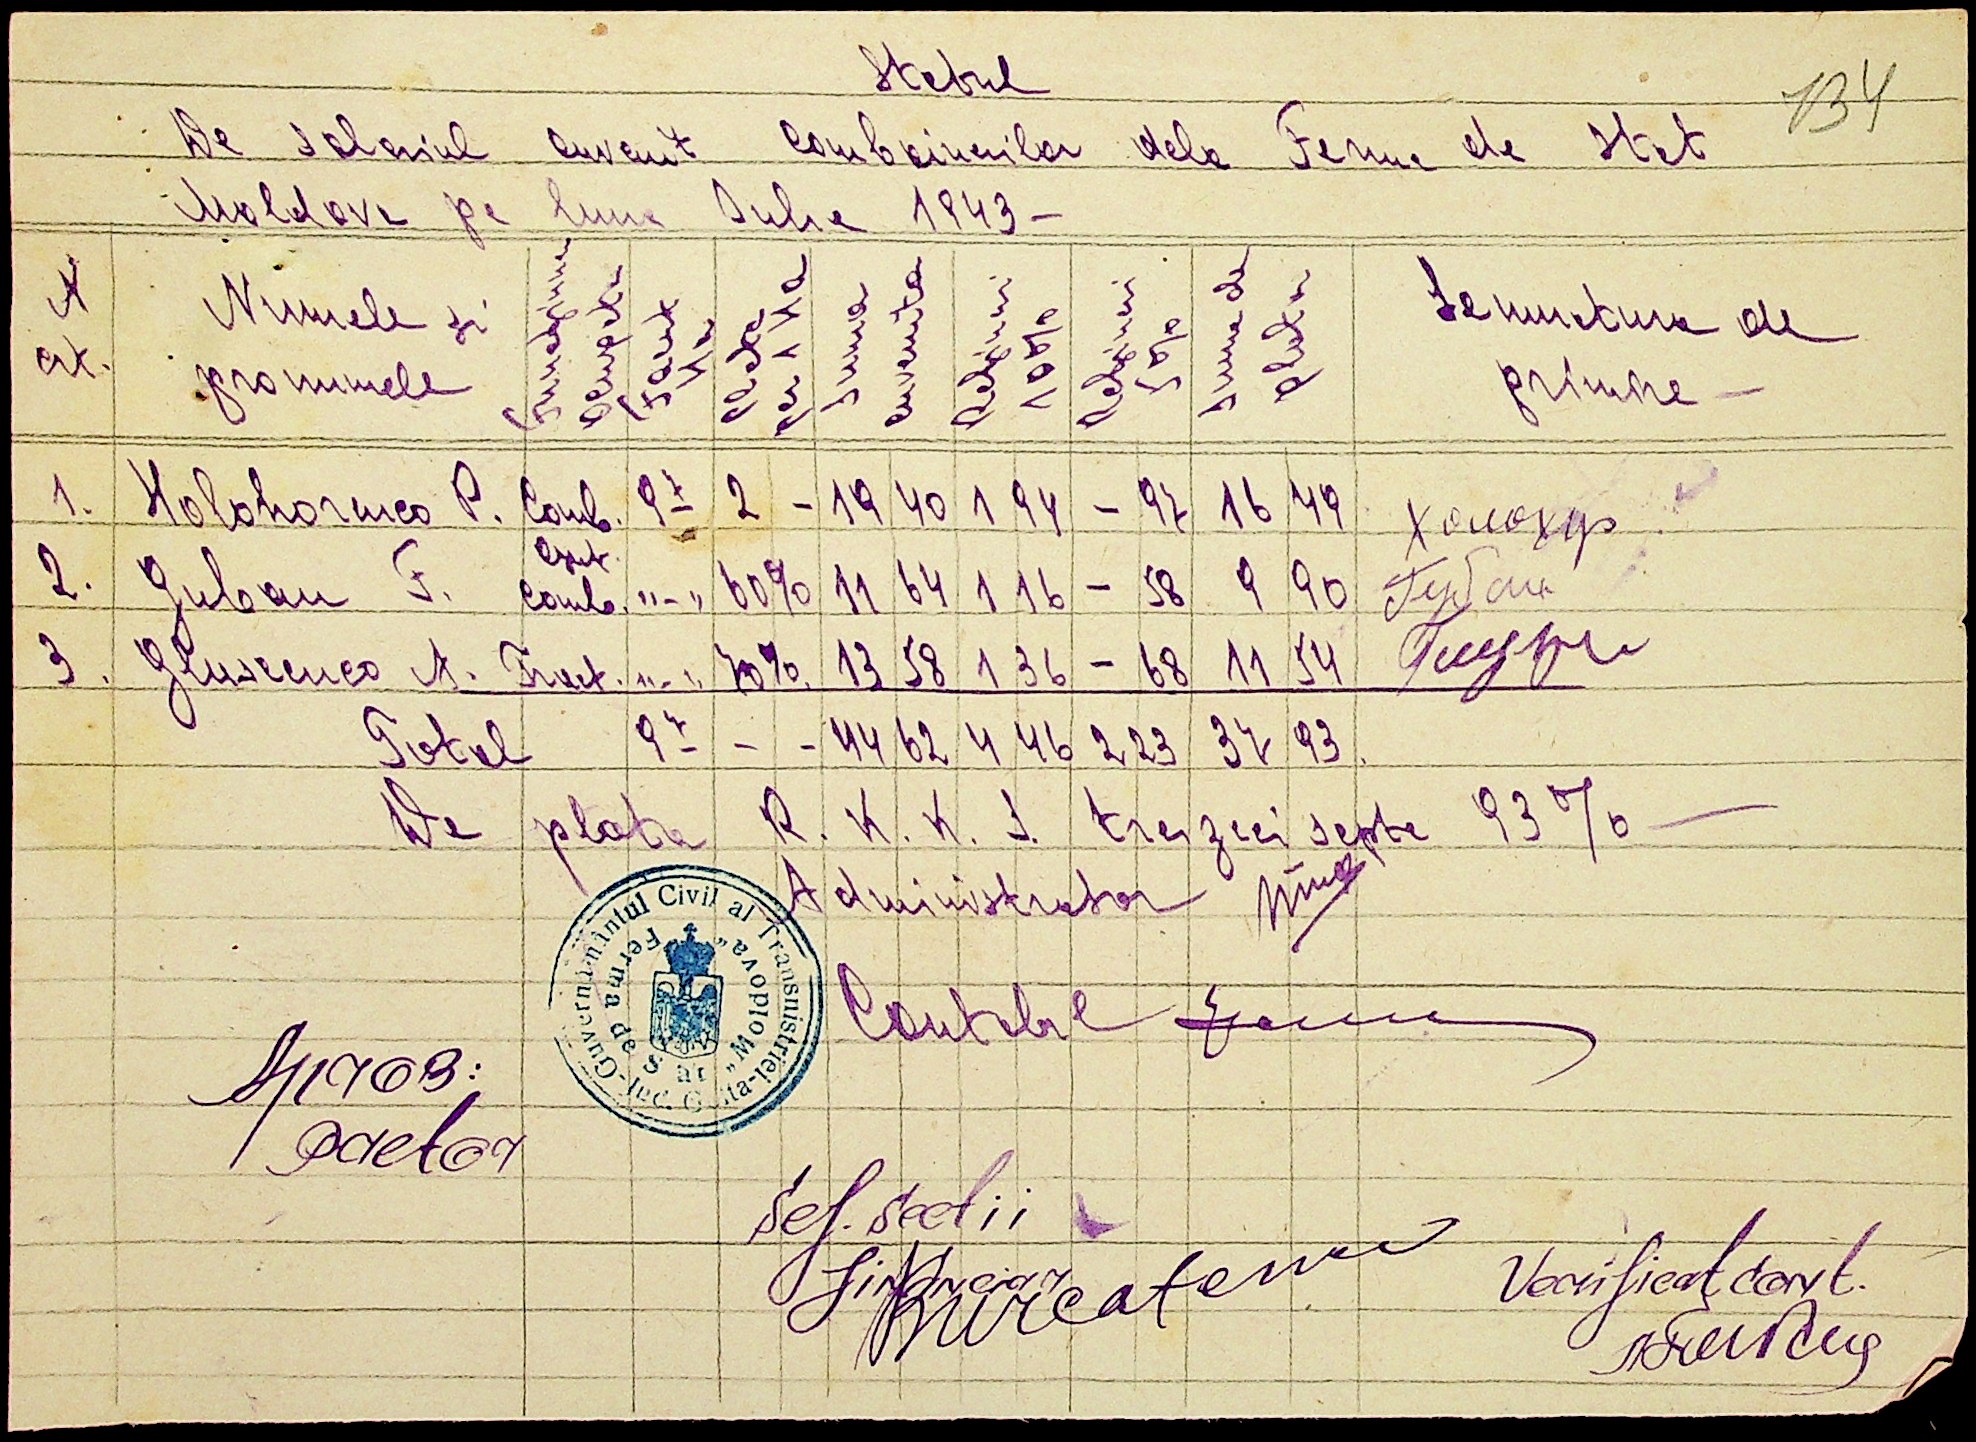 Statul
134
De salariul cuvenit combainerilor dela Ferma de Stat
Moldova pe luna Iulie 1943 –
N crt. Numele si pronumele Functiunea ocupata Facut Ha Plata per 1 Ha Suma cuvenita Retineri 10% Retineri 5% Suma de plata Semnatura de primire –
1. Holohorenco P. Comb. 9,7 2 – 19 40 1 94 – 97 16 49 Холохур
2. Guban F. ajut. comb. "–" 60% 11 64 1 16 – 58 9 90 Губан
3. Gluscenco A. Tract. "–" 70% 13 58 1 36 – 68 11 54
Total 9,7 – – 44 62 4 46 2 23 37 93.
De plata R.K.K.S. treizeci septe 93% –
Administrator
Contabil
Guvernamintul Civil al Transnistriei
Ferma de Stat „Moldova”
Aprob:
Pretor
Sef. Sectii
financiar
Verificat cont.